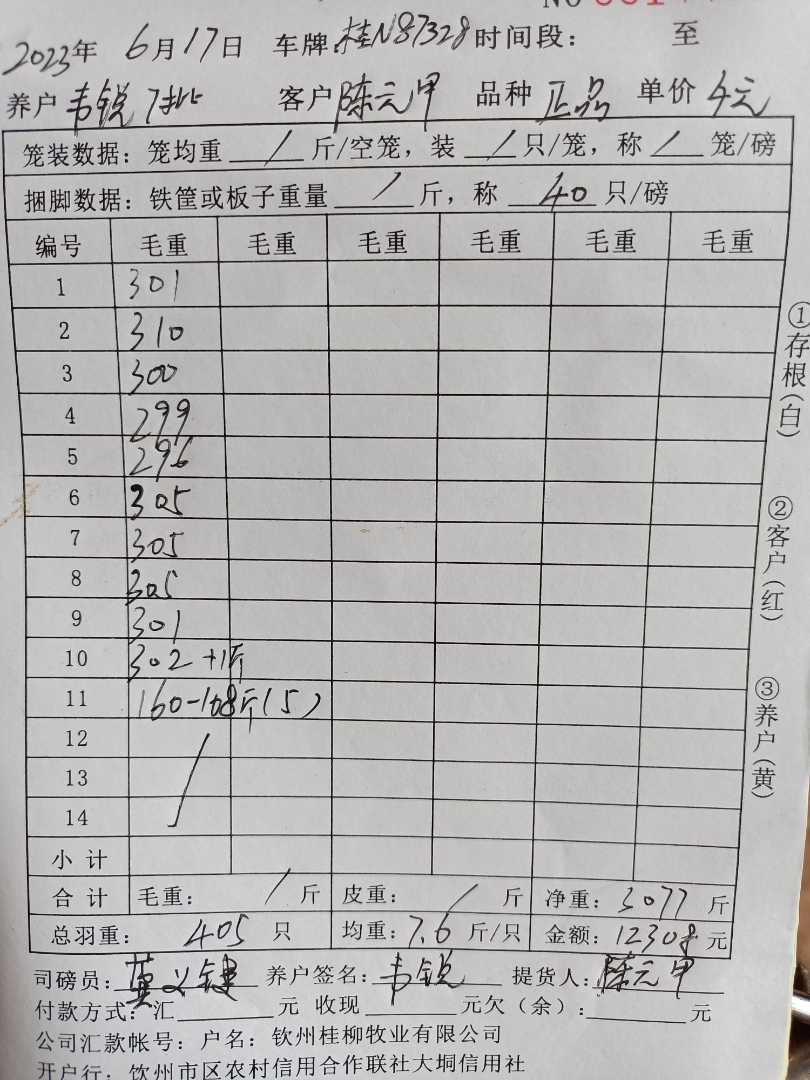 2023年 6月17日 车牌 桂N87328 时间段： 至
养户 韦锐 7批 客户 陈元甲 品种 正品 单价 4元
笼装数据：笼均重 / 斤/空笼，装 / 只/笼，称 / 笼/磅
捆脚数据：铁筐或板子重量 / 斤，称 40 只/磅
编号 毛重 毛重 毛重 毛重 毛重 毛重
1 301
2 310
3 300
4 299
5 296
6 305
7 305
8 305
9 301
10 302 +1斤
11 160-108斤(5)
12
13
14
小计
合计 毛重： / 斤 皮重： / 斤 净重：3077 斤
总羽重： 405 只 均重：7.6 斤/只 金额：12308 元
司磅员：莫义键 养户签名：韦锐 提货人：陈元甲
付款方式：汇 元 收现 元欠（余）： 元
公司汇款帐号：户名：钦州桂柳牧业有限公司
开户行：钦州市区农村信用合作联社大垌信用社
①存根(白)
②客户(红)
③养户(黄)